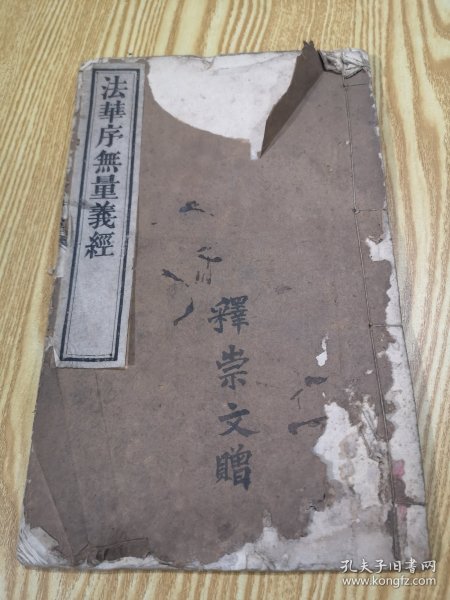 法華序無量義經
釋崇文贈
孔夫子旧书网
www.kongfz.com